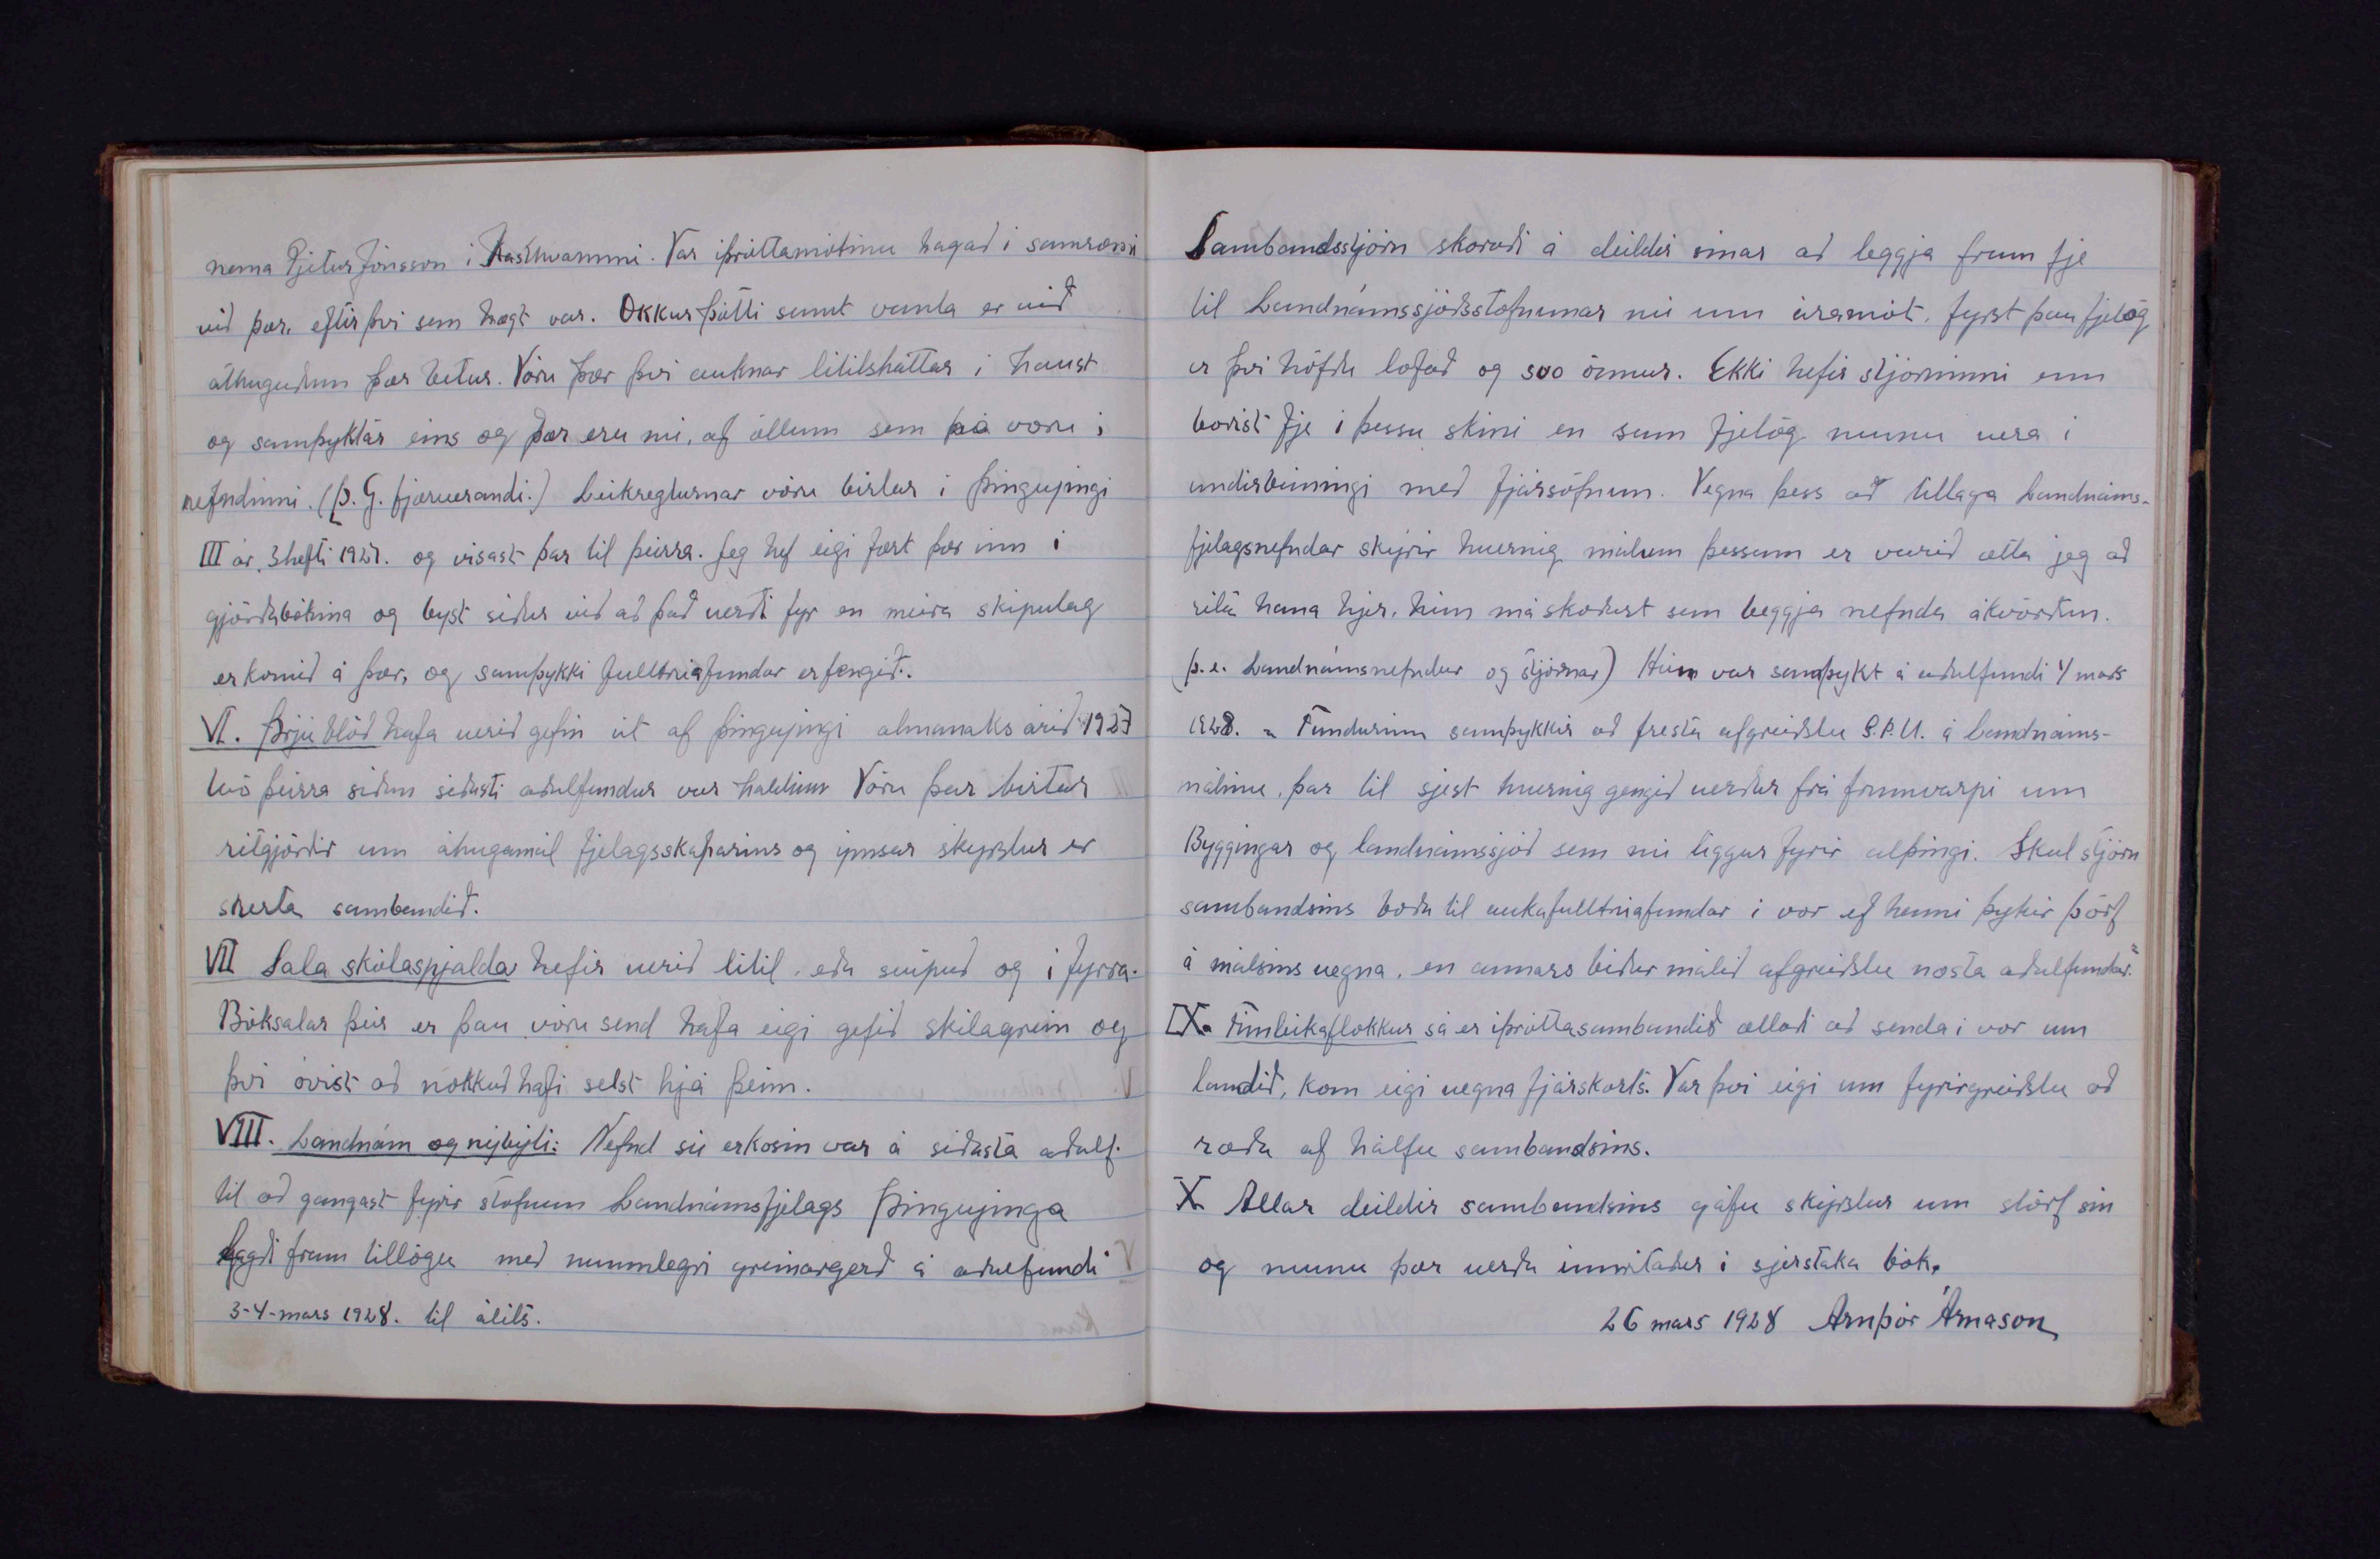 nema Pjetur Jónsson í Kasthvammi. Var íþróttamótinu hagað í samræmi
við þær, eftir því sem hægt var. Okkur þótti sumt vanta er við
athuguðum þær betur. Vóru þær því auknar lítilsháttar í haust
og samþyktar eins og þær eru nú, af öllum sem þá voru í
nefndinni. (Þ. G. fjærverandi.) Leikreglurnar vóru birtar í Þingeyingi
III ár, 3 hefti 1927. og vísast þar til þeirra. Jeg hef eigi fært þær inn í
gjörðabókina og býst síður við að það verði fyr en meira skipulag
er komið á þær, og samþykki fulltrúafundar er fengið.
VI. Þrjú blöð hafa verið gefin út af Þingeyingi almanaksárið 1927
tvö þeirra síðan síðasti aðalfundur var haldinn Vóru þar birtar
ritgjörðir um áhugamál fjelagsskaparins og ýmsar skýrslur er
snerta sambandið.
VII Sala skólaspjalda hefir verið lítil, eða svipuð og í fyrra.
Bóksalar þeir er þau vóru send hafa eigi gefið skilagrein og
því óvíst að nokkuð hafi selst hjá þeim.
VIII. Landnám og nýbýli: Nefnd sú er kosin var á síðasta aðalf.
til að gangast fyrir stofnun Landnámsfjelags Þingeyinga
lagði fram tillögu með munnlegri greinargerð á aðalfundi
3-4-mars 1928. til álits.
Sambandsstjórn skoraði á deildir sínar að leggja fram fje
til Landnámssjóðsstofnunar nú um áramót, fyrst þau fjelög
er því höfðu lofað og svo önnur. Ekki hefir stjórninni enn
borist fje í þessu skini en sum fjelög munu vera í
undirbúningi með fjársöfnun. Vegna þess að tillaga Landnáms-
fjelagsnefndar skýrir hvernig málum þessum er varið ætla jeg að
rita hana hjer, hún má skoðast sem beggja nefnda ákvörðun.
(þ.e. Landnámsnefndar og stjórnar) Hún var samþykt á aðalfundi 4 mars
1928. „Fundurinn samþykkir að fresta afgreiðslu S.Þ.U. á landnáms-
málinu, þar til sjest hvernig gengið verður frá frumvarpi um
Byggingar og landnámssjóð sem nú liggur fyrir alþingi. Skal stjórn
sambandsins boða til aukafulltrúafundar í vor ef henni þykir þörf
á málsins vegna, en annars bíður málið afgreiðslu næsta aðalfundar."
IX. Fimleikaflokkur sá er íþróttasambandið ætlaði að senda í vor um
landið, kom eigi vegna fjárskorts. Var því eigi um fyrirgreiðslu að
ræða af hálfu sambandsins.
X Allar deildir sambandsins gáfu skýrslur um störf sín
og munu þær verða innritaðar í sjerstaka bók.
26 mars 1928 Arnþór Árnason